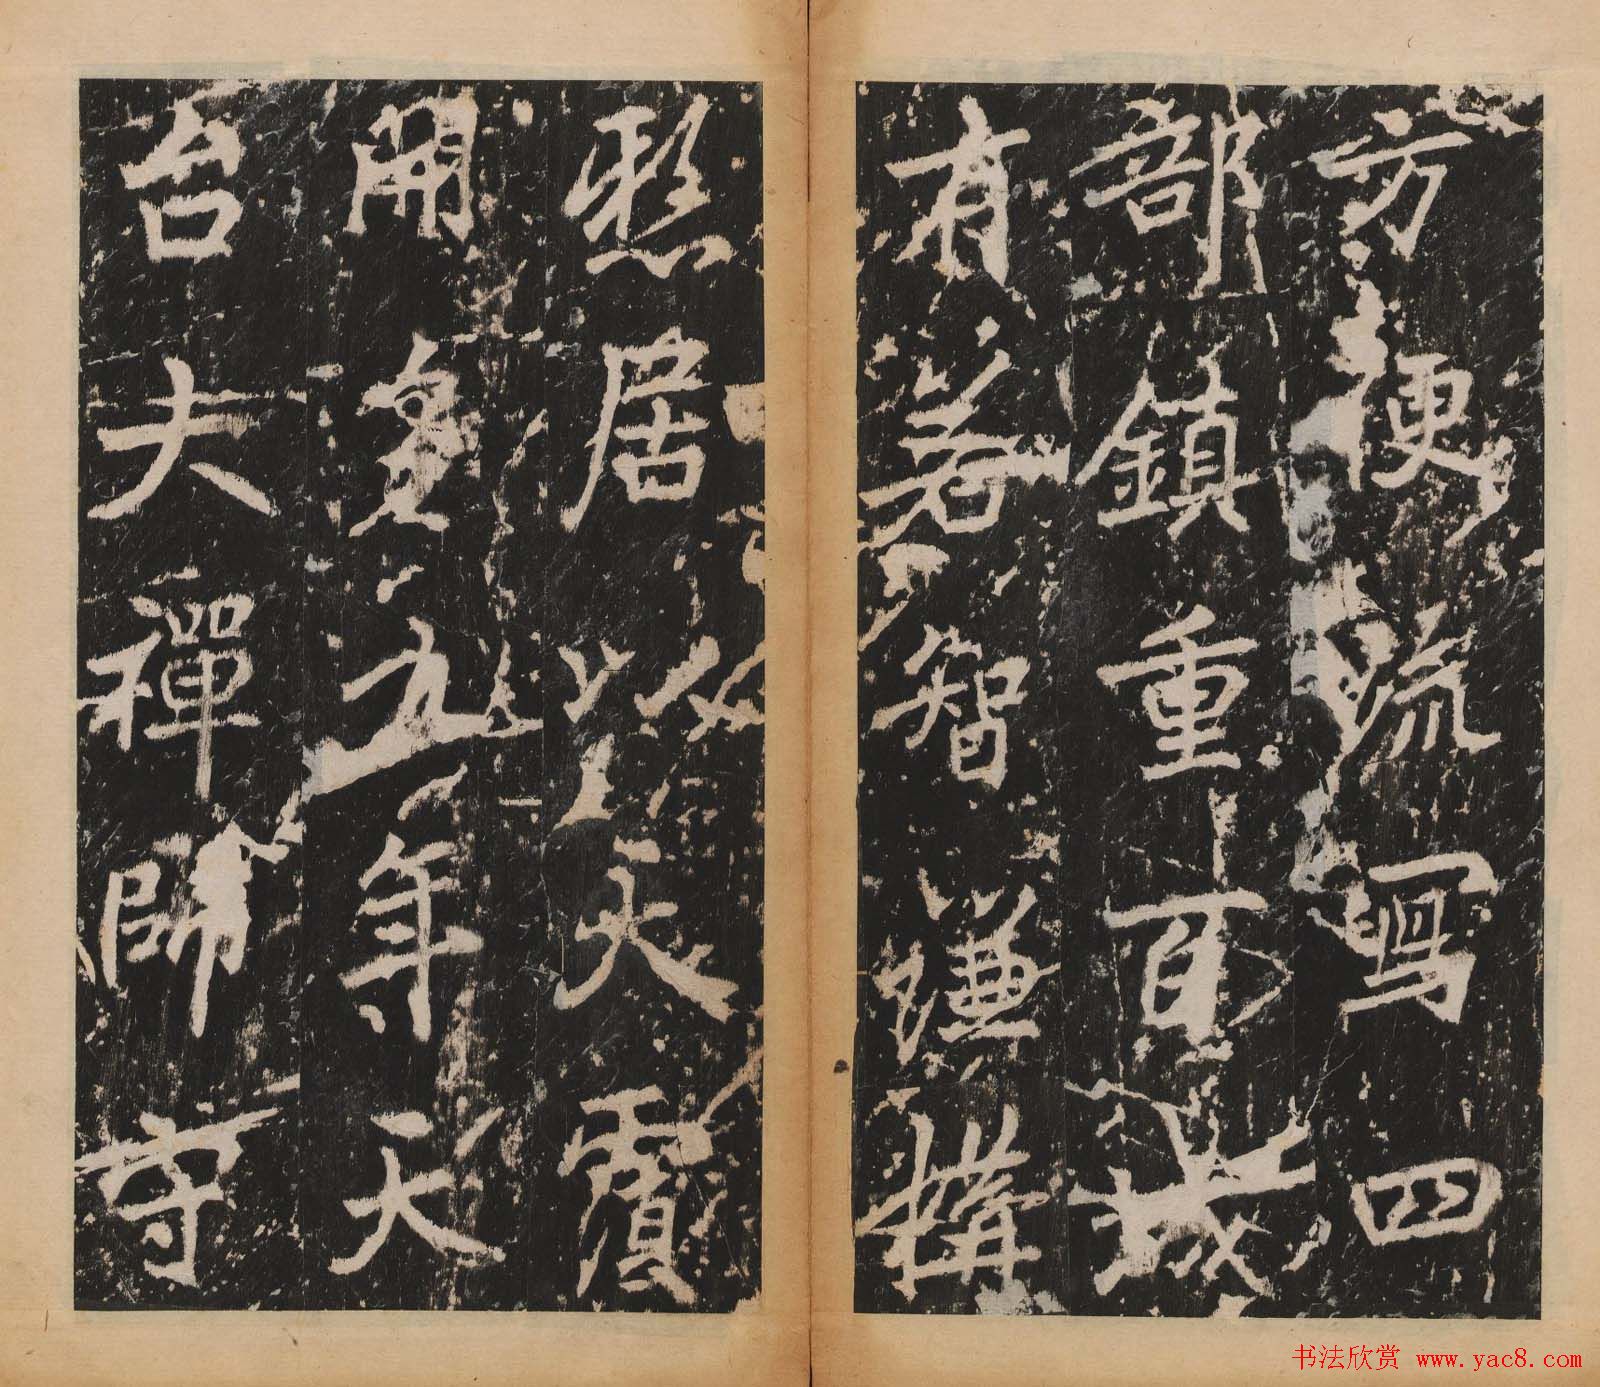 方便疏寫四
部鎮重百城
有若智謙搆
居以天寶
開皇九年天
台大禪師守
书法欣赏 www.yac8.com